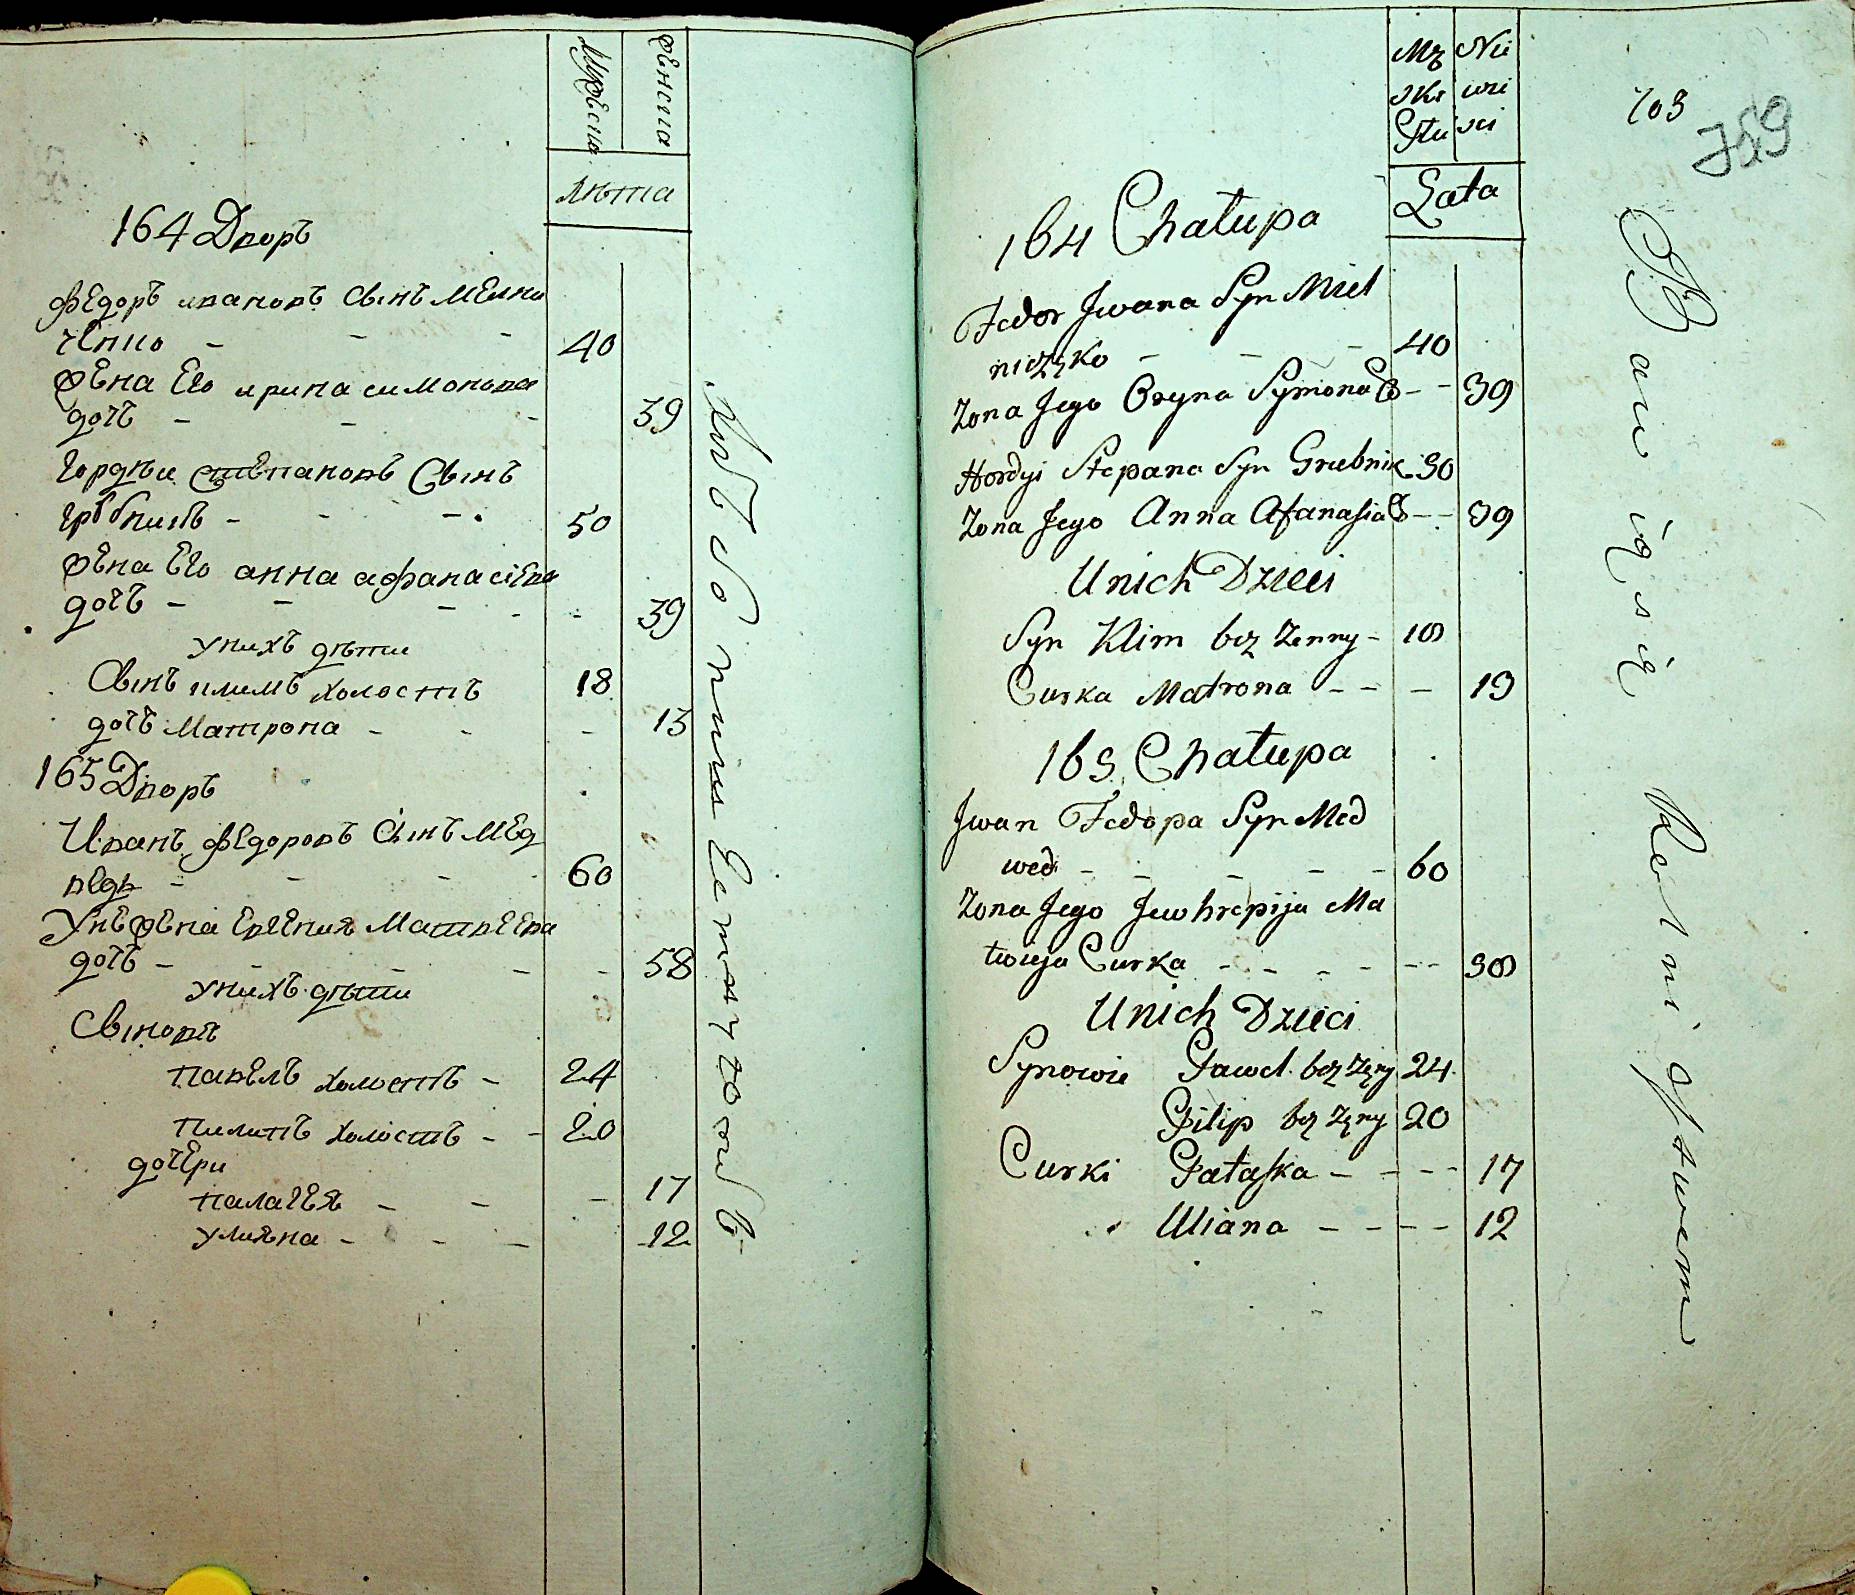 Мужеска
Женска
Лѣта
164 Дворъ
Федоръ ивановъ Сынъ Мелни
ченко - - - 40
Жена Его ирина симонова
дочъ - - - 39
Гордѣи степановъ Сынъ
грубникъ - - - 50
Жена Его анна афанасіева
дочъ - - - - - 39
уnихъ дѣти
Сынъ климъ холостъ 18
дочъ Матрона - - - 13
165 Дворъ
Иванъ Федоровъ Сынъ Мед
ведь - - - - 60
Унеѣ жена Евгения Матвеева
дочъ - - - - - 58
унихъ дѣти
Сыновя
павелъ холостъ - 24
пилипъ холостъ - - 20
дочери
палагея - - - 17
улияна - - - 12
писменнихъ
Mę Nie
skı wie
Płci sci
Lata
703
759
164 Chałupa
Fedor Jwana Syn Miel
niczęko - - - 40
Zona Jego Oryna Symona C - - 39
Hordyi Stepana Syn Grubnik 50
Zona Jego Anna Afanasia C - - 39
Unich Dzieci
Syn Klim bez Zenny - 18
Curka Matrona - - - 13
165 Chałupa
Jwan Fedora Syn Med
wed - - - - - 60
Zona Jego Jewhrepija Ma
twieja Curka - - - - - - 58
Unich Dzieci
Synowie Paweł bez Zęny 24
Filip bez Zęny 20
Curki Pałaska - - - - 17
Uliana - - - - 12